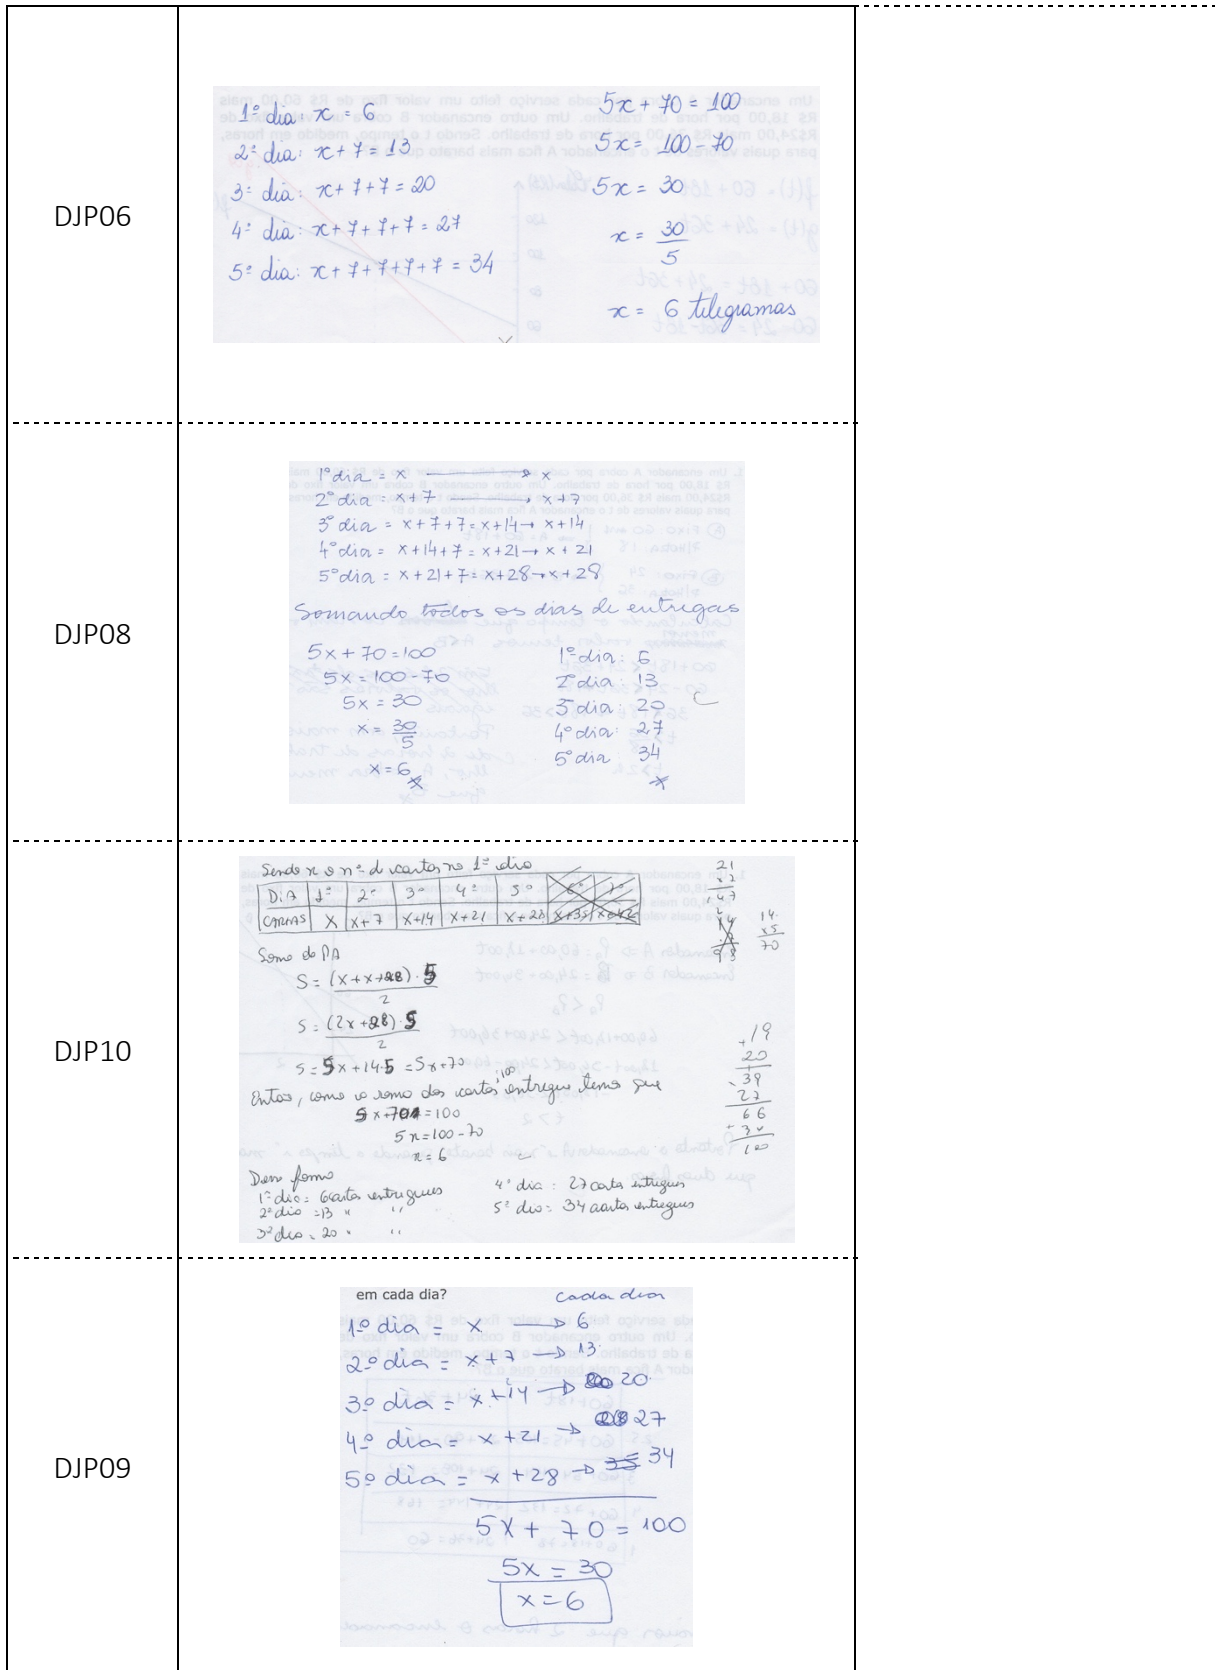 DJP06
1º dia: x = 6
2º dia: x + 7 = 13
3º dia: x + 7 + 7 = 20
4º dia: x + 7 + 7 + 7 = 27
5º dia: x + 7 + 7 + 7 + 7 = 34
5x + 70 = 100
5x = 100 - 70
5x = 30
x = 30/5
x = 6 telegramas
DJP08
1º dia = x → x
2º dia = x + 7 → x + 7
3º dia = x + 7 + 7 = x + 14 → x + 14
4º dia = x + 14 + 7 = x + 21 → x + 21
5º dia = x + 21 + 7 = x + 28 → x + 28
Somando todos os dias de entregas
5x + 70 = 100
5x = 100 - 70
5x = 30
x = 30/5
x = 6
1º dia: 6
2º dia: 13
3º dia: 20
4º dia: 27
5º dia: 34
DJP10
Sendo x o nº d cartas no 1º dia
DIA 1º 2º 3º 4º 5º 6º 7º
CARTAS X x+7 x+14 x+21 x+28 x+35 x+42
Soma da PA
S = (x+x+28).5
2
S = (2x+28).5
2
S = 5x + 14.5 = 5x+70
Então, como a soma das cartas entregue temos que
5x+70 = 100
5x = 100 - 70
x = 6
Dessa forma
1º dia = 6 cartas entregues
2º dia = 13 " "
3º dia = 20 " "
4º dia: 27 cartas entregues
5º dia = 34 cartas entregues
14
x5
70
+19
20
39
27
66
+34
100
DJP09
em cada dia?
cada dia
1º dia = x → 6
2º dia = x + 7 → 13
3º dia = x + 14 → 20
4º dia = x + 21 → 27
5º dia = x + 28 → 34
5x + 70 = 100
5x = 30
x = 6